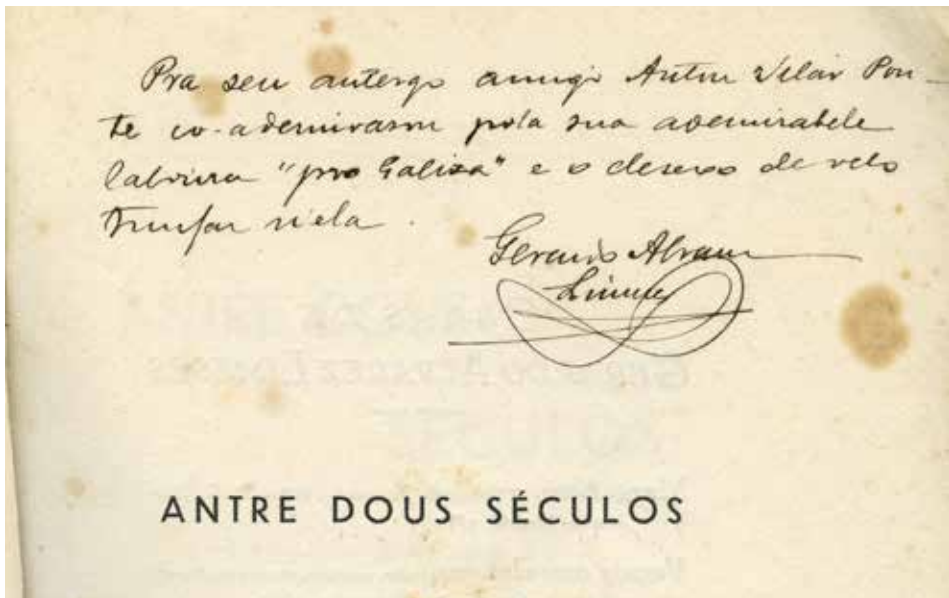 Pra seu antergo amigo Antón Vilar Pon-
te co-ademirasom pola sua ademirabele
laboura "pro Galiza" e o desexo de velo
trunfar n'ela.
Gerardo Alvarez
Limeses
ANTRE DOUS SÉCULOS